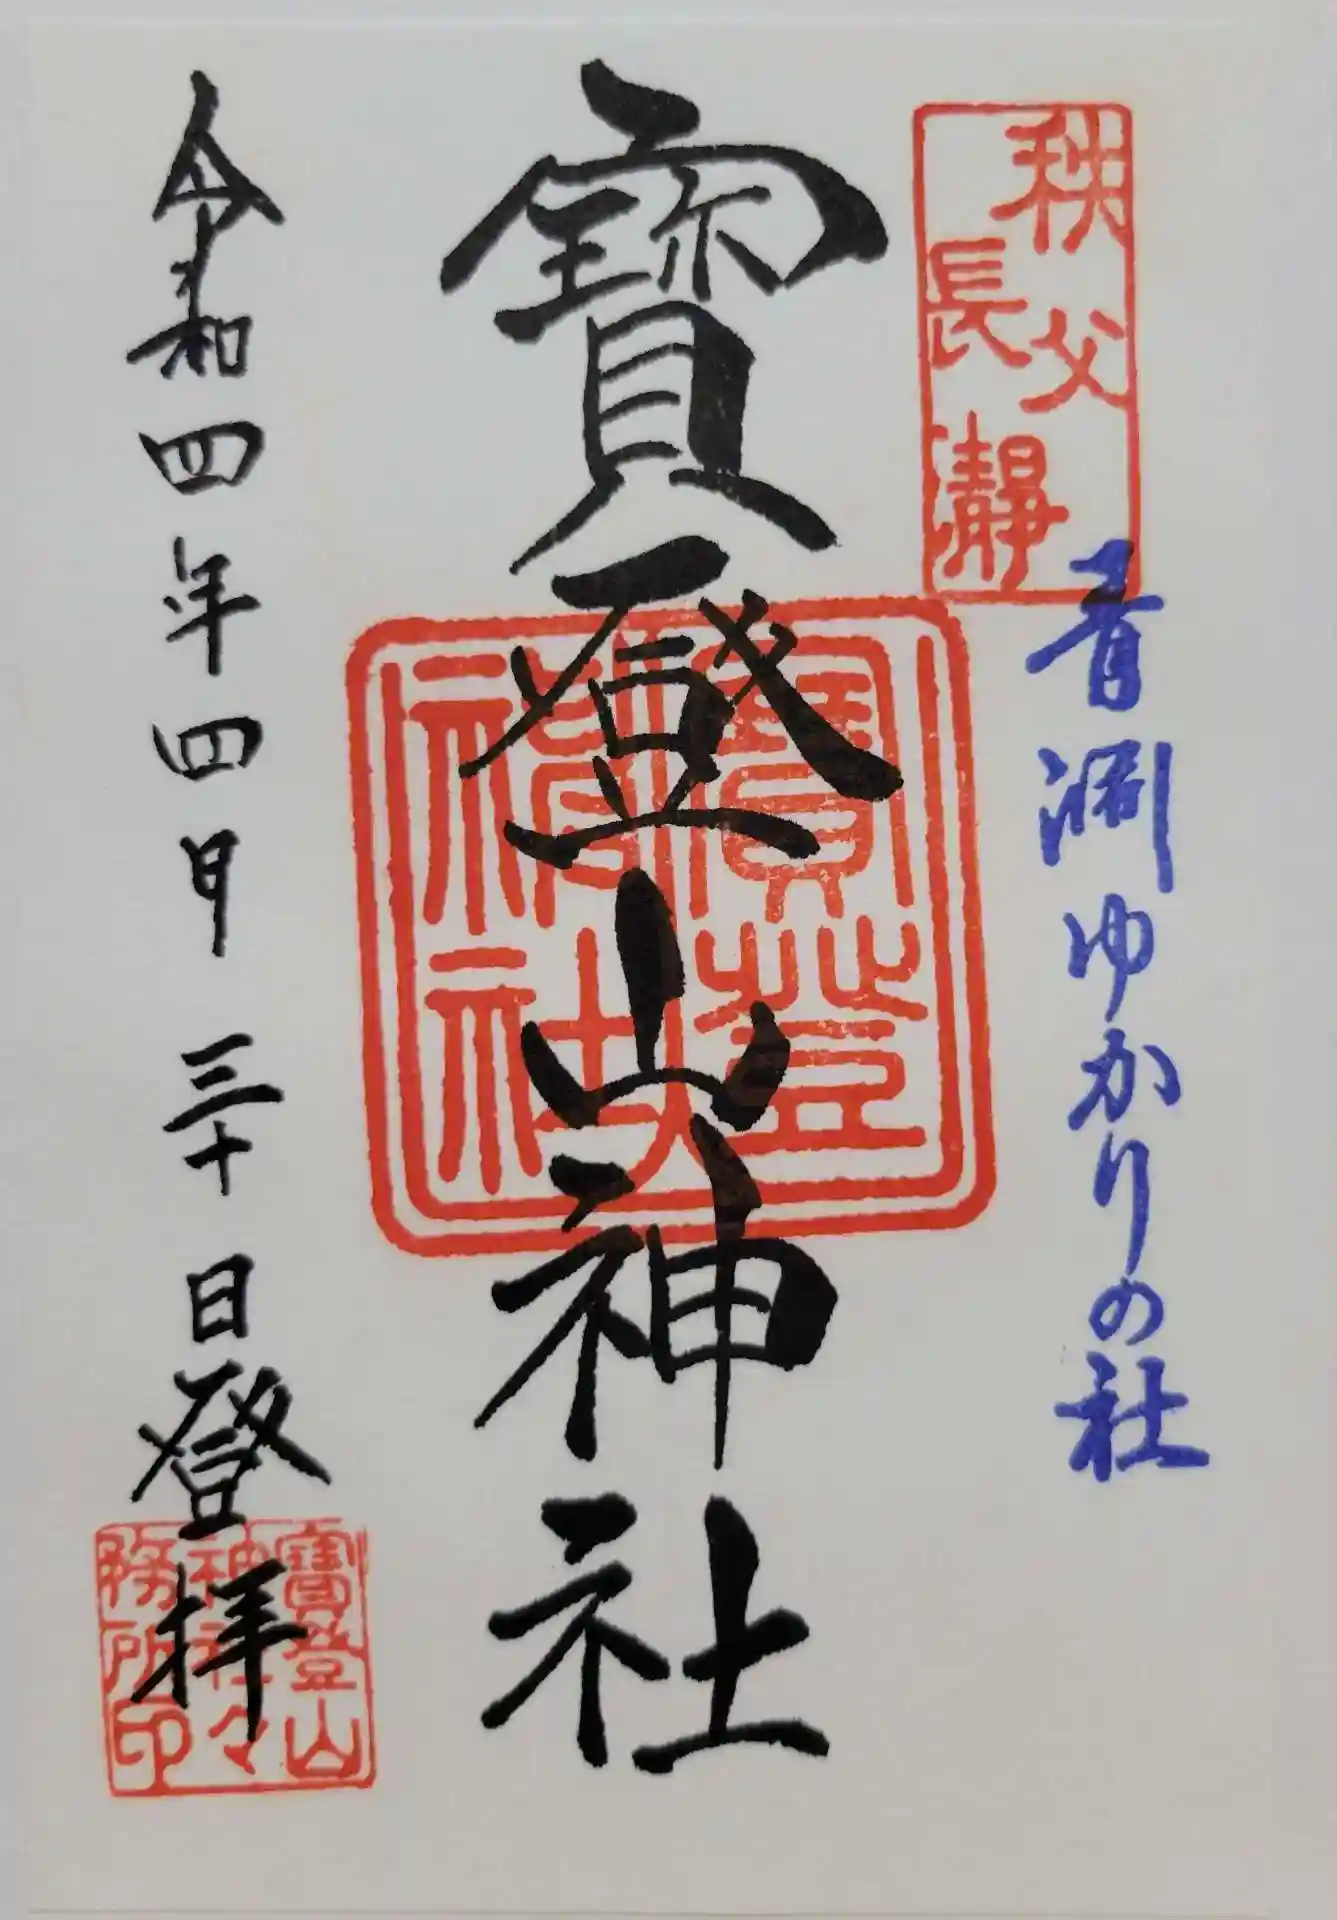 秩父
長瀞
青淵ゆかりの社
寳登山神社
寳登
神社
令和四年四月三十日登拝
寳登山
神社々
務所印